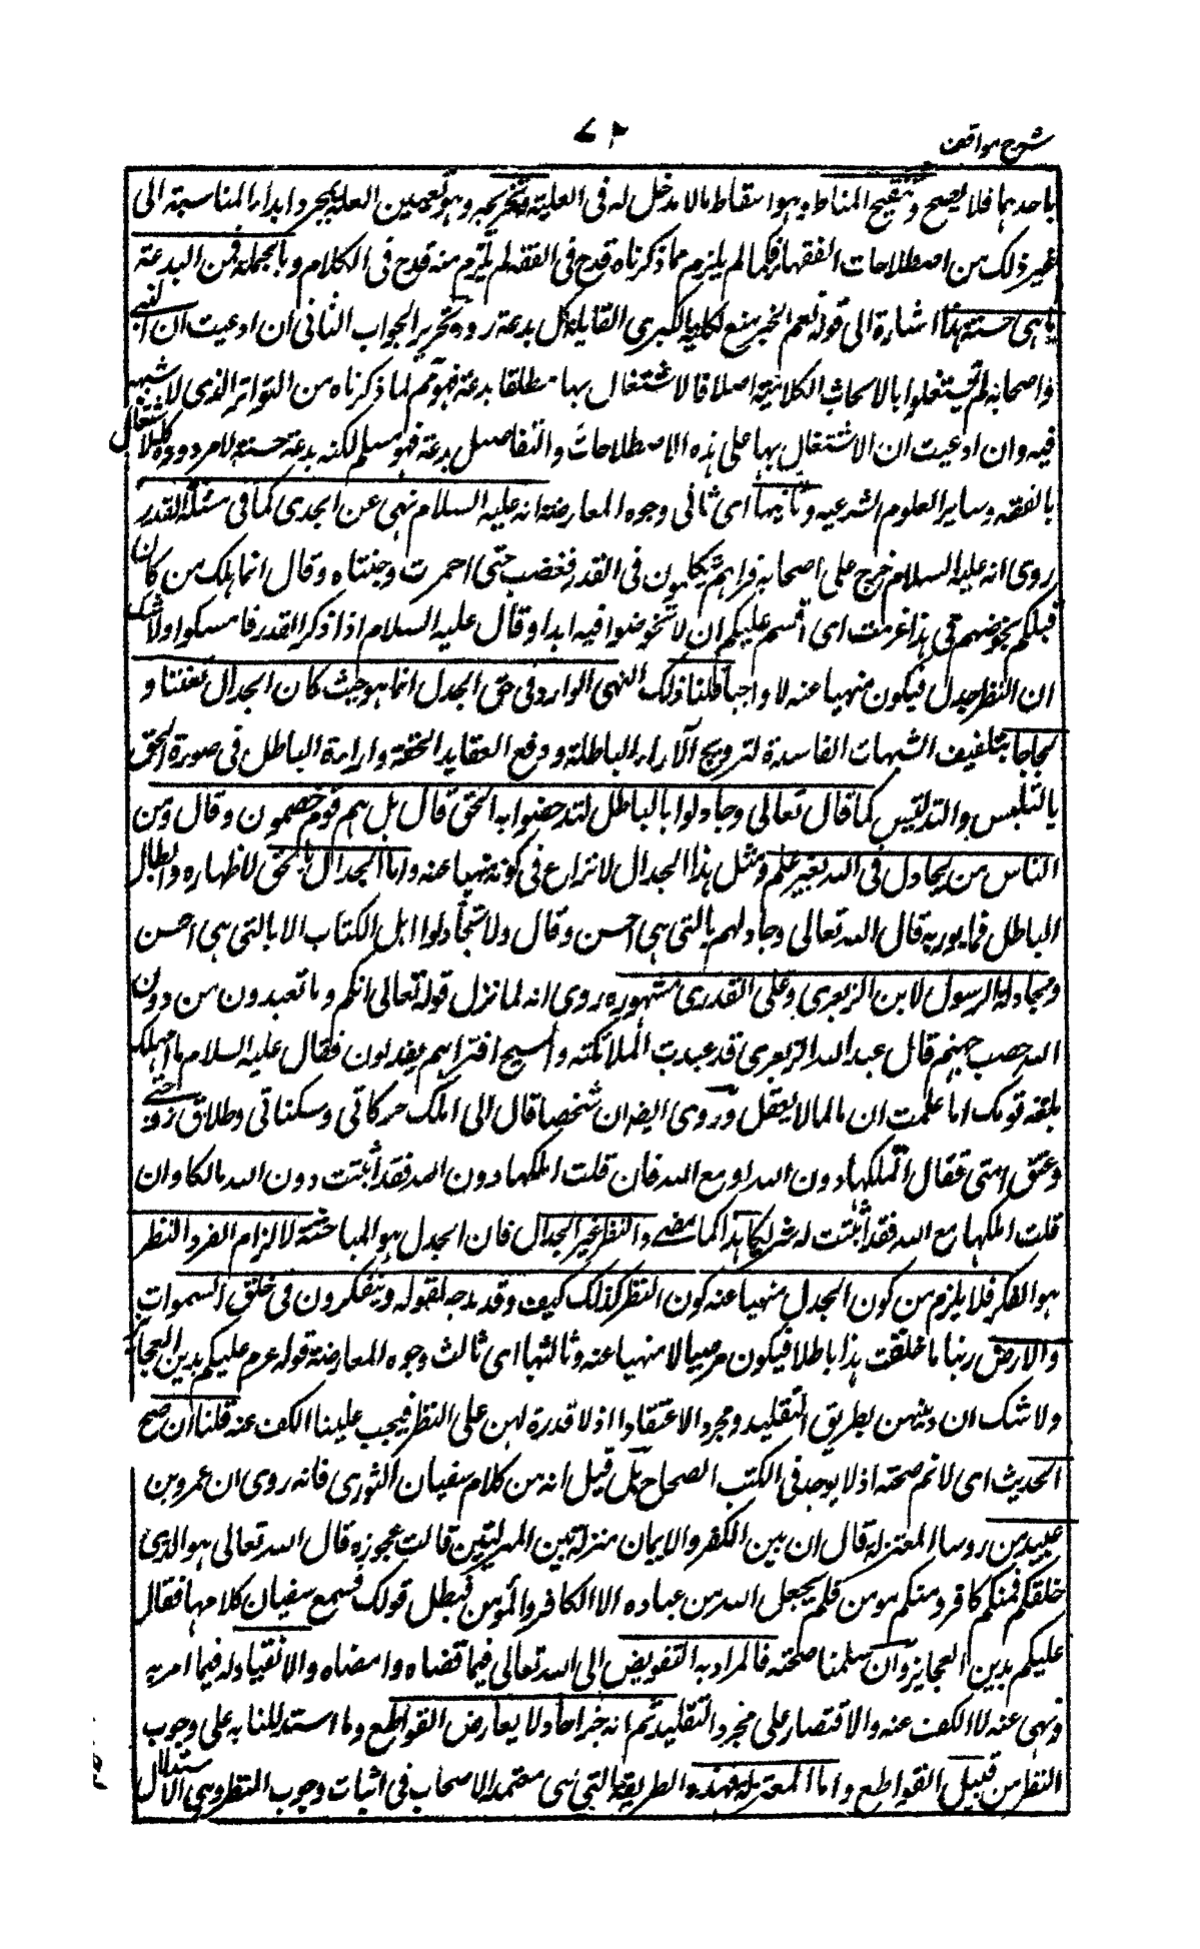 شرح مواقف
۷۲
باحدهما فلا يصح وتنقيح المناط وهو اسقاط مالا مدخل له فى العلية وتخريجه وهو تعيين العلة بمجرد ابداء المناسبة الى
غير ذلك من اصطلاحات الفقهاء فكما لم يلزم مما ذكرناه قدح فى الفقه لم يلزم منه قدح فى الكلام وبالجملة فمن البدعة
ما هى حسنة هذا اشارة الى قوله نعم الخبر منع لكلية الكبرى القايلة كل بدعة رد وتحرير الجواب الثانى ان ادعيت ان النبى
واصحابه لم يشتغلوا بالابحاث الكلامية اصلا فالاشتغال بها مطلقا بدعة فهو مم لما ذكرناه من التواتر الذى لا شبهة
فيه وان ادعيت ان الاشتغال بها على هذه الاصطلاحات والتفاصيل بدعة فهو مسلم لكنه بدعة حسنة لا مردودة كالاشتغال
بالفقه وساير العلوم الشرعيه وثانيها اى ثانى وجوه المعارضة انه عليه السلام نهى عن الجدل كما فى مسئلة القدر
روى انه عليه السلام خرج على اصحابه فراهم يتكلمون فى القدر فغضب حتى احمرت وجنتاه وقال انما هلك من كان
قبلكم بخوضهم فى هذا عزمت اى اقسم عليكم ان لا تخوضوا فيه ابدا وقال عليه السلام اذا ذكر القدر فامسكوا ولا شك
ان النظر جدل فيكون منهيا عنه لا واجبا قلنا ذلك النهى الوارد فى حق الجدل انما هو حيث كان الجدال تعنتا و
لجاجا بتلفيف الشبهات الفاسدة لترويج الآراء الباطلة ودفع العقايد الحقة واراءة الباطل فى صورة الحق
بالتلبس والتدليس كما قال تعالى وجادلوا بالباطل ليدحضوا به الحق قال بل هم قوم خصمون وقال ومن
الناس من يجادل فى الله بغير علم ومثل هذا الجدال لا نزاع فى كونه منهيا عنه واما الجدال بالحق لاظهاره وابطال
الباطل فمامور به قال الله تعالى وجادلهم بالتى هى احسن وقال ولا تجادلوا اهل الكتاب الا بالتى هى احسن
ومجادلة الرسول لابن الزبعرى وعلى القدرى مشهوره روى انه لما نزل قوله تعالى انكم وما تعبدون من دون
الله حصب جهنم قال عبد الله الزبعرى قد عبدت الملائكة والمسيح افتراهم يعذبون فقال عليه السلام ما اجهلك
بلغة قومك اما علمت ان ما لما لا يعقل وروى ايضا ان شخصا قال انى املك حركاتى وسكناتى وطلاق زوجتى
وعتق امتى فقال اتملكها دون الله او مع الله فان قلت املكها دون الله فقد اثبت دون الله مالكا وان
قلت املكها مع الله فقد اثبت له شريكا هذا كما مضى والنظر غير الجدال فان الجدل هو المباحثة لالزام الغير والنظر
هو الفكر فلا يلزم من كون الجدل منهيا عنه كون النظر كذلك كيف وقد مدحه بقوله ويتفكرون فى خلق السموات
والارض ربنا ما خلقت هذا باطلا فيكون مرضيا لا منهيا عنه وثالثها اى ثالث وجوه المعارضة قوله عم عليكم بدين العجائز
ولا شك ان دينهن بطريق التقليد ومجرد الاعتقاد اذ لا قدرة لهن على النظر فيجب علينا الكف عنه قلنا ان صح
الحديث اى لا نم صحته اذ لا يوجد فى الكتب الصحاح بل قيل انه من كلام سفيان الثورى فانه روى ان عمرو بن
عبيد من روسا المعتزلة قال ان بين الكفر والايمان منزلة بين المنزلتين قالت عجوزه قال الله تعالى هو الذى
خلقكم فمنكم كافر ومنكم مومن فلم يجعل الله من عباده الا الكافر والمؤمن فبطل قولك فسمع سفيان كلامها فقال
عليكم بدين العجايز وان سلمنا صحته فالمراد به التفويض الى الله تعالى فيما قضاه وامضاه والانقياد له فيما امر به
ونهى عنه لا الكف عنه والاقتصار على مجرد التقليد ثم انه خبر احاد ولا يعارض القواطع وما استدللنا به على وجوب
النظر من قبيل القواطع واما المعتزلة فهذه الطريقة التى هى معتمد الاصحاب فى اثبات وجوب النظر وهى الاستدلال